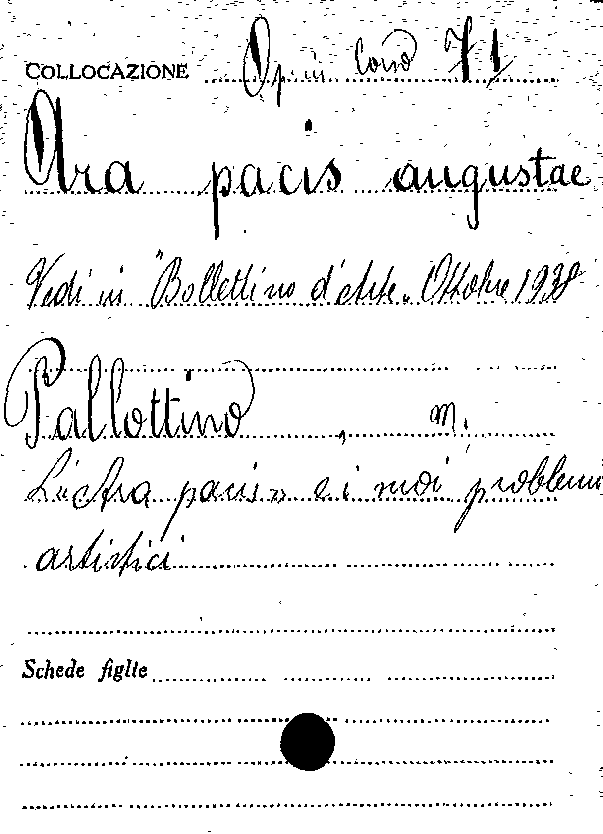 COLLOCAZIONE Op. in Corso 71
Ara pacis augustae
Vedi in "Bollettino d'Arte" Ottobre 1938
Pallottino, M.
L'"Ara pacis" e i suoi problemi
artistici
Schede figlie